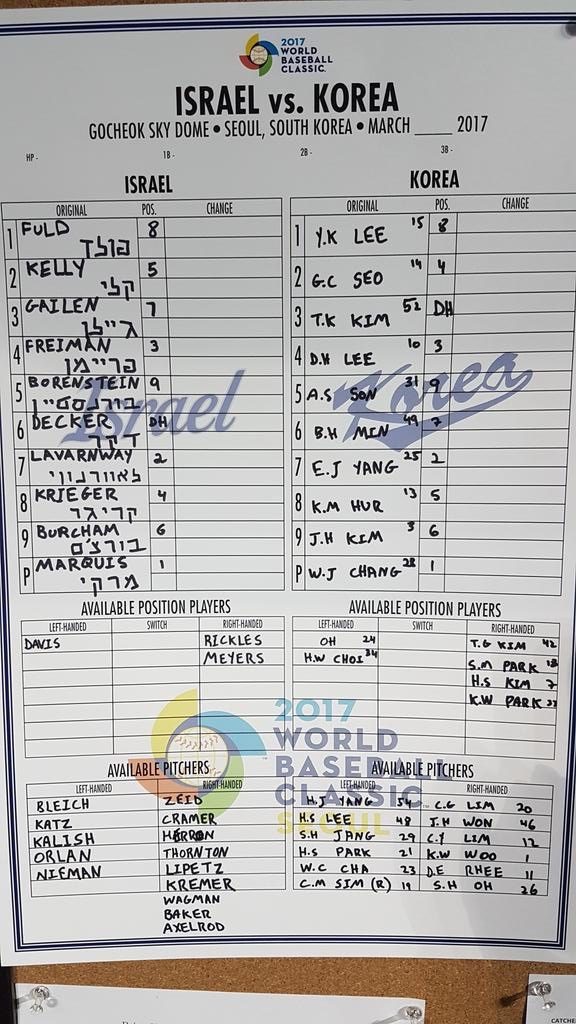 2017
WORLD
BASEBALL
CLASSIC
ISRAEL vs. KOREA
GOCHEOK SKY DOME • SEOUL, SOUTH KOREA • MARCH ____ 2017
HP - 1B - 2B - 3B -
ISRAEL
ORIGINAL POS. CHANGE
1 FULD 8
פולד
2 KELLY 5
קלי
3 GAILEN 7
גיילן
4 FREIMAN 3
פריימן
5 BORENSTEIN 9
בורנסטיין
6 DECKER DH
דקר
7 LAVARNWAY 2
לאוורנווי
8 KRIEGER 4
קריגר
9 BURCHAM 6
בורצ'ם
P MARQUIS 1
מרקי
Israel
KOREA
ORIGINAL POS. CHANGE
1 Y.K LEE 15 8
2 G.C SEO 14 4
3 T.K KIM 52 DH
4 D.H LEE 10 3
5 A.S SON 31 9
6 B.H MIN 49 7
7 E.J YANG 25 2
8 K.M HUR 13 5
9 J.H KIM 3 6
P W.J CHANG 28 1
Korea
AVAILABLE POSITION PLAYERS
LEFT-HANDED SWITCH RIGHT-HANDED
DAVIS RICKLES
MEYERS
AVAILABLE POSITION PLAYERS
LEFT-HANDED SWITCH RIGHT-HANDED
OH 24 T.G KIM 42
H.W CHOI 34 S.M PARK
H.S KIM 7
K.W PARK
2017
WORLD
BASEBALL
CLASSIC
SEOUL
AVAILABLE PITCHERS
LEFT-HANDED RIGHT-HANDED
BLEICH ZEID
KATZ CRAMER
KALISH HERRON
ORLAN THORNTON
NIEMAN LIPETZ
KREMER
WAGMAN
BAKER
AXELROD
AVAILABLE PITCHERS
LEFT-HANDED RIGHT-HANDED
H.J YANG 54 C.G LIM 20
H.S LEE 48 J.H WON 46
S.H JANG 29 C.Y LIM 12
H.S PARK 21 K.W WOO 1
W.C CHA 23 D.E RHEE 11
C.M SIM (R) 19 S.H OH 26
CATCHE